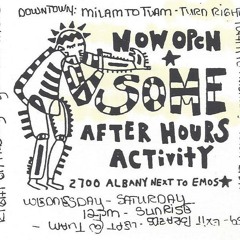 DOWNTOWN: MILAM TO TUAM - TURN RIGHT
NOW OPEN
SOME
AFTER HOURS
ACTIVITY
2700 ALBANY NEXT TO EMOS★
WEDNESDAY - SATURDAY
12PM - SUNRISE
EXIT BRAZOS - LEFT @ TUAM